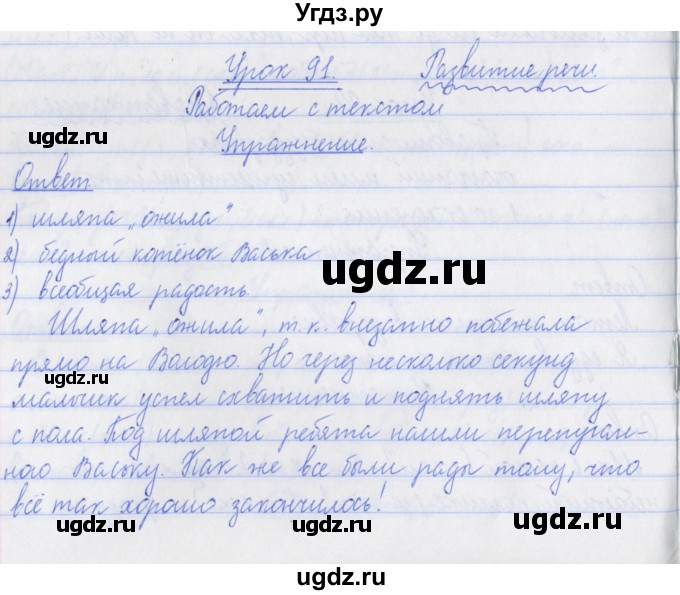 Угдз.ру
Урок 91. Развитие речи.
Работаем с текстом
Упражнение.
ugdz.ru
ugdz.ru
Ответ
1) шляпа „ожила"
2) бедный котёнок Васька
3) всеобщая радость.
ugdz.ru
Шляпа „ожила", т.к. внезапно побежала
прямо на Володю. Но через несколько секунд
ugdz.ru
ugdz.ru
мальчик успел схватить и поднять шляпу
с пола. Под шляпой ребята нашли перепуган-
ного Ваську. Как же все были рады тому, что
всё так хорошо закончилось!
ugdz.ru
ugdz.ru
ugdz.ru